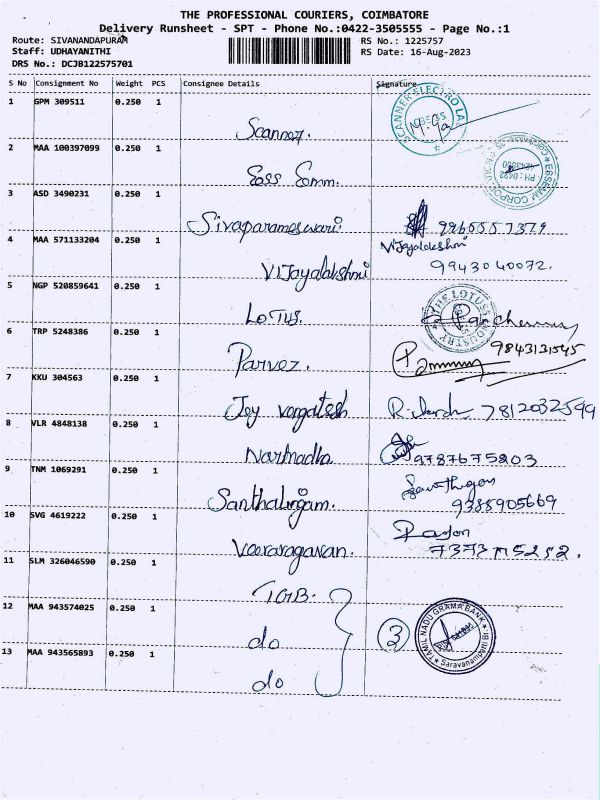 THE PROFESSIONAL COURIERS, COIMBATORE
Delivery Runsheet - SPT - Phone No.:0422-3505555 - Page No.:1
Route: SIVANANDAPURAM RS No.: 1225757
Staff: UDHAYANITHI RS Date: 16-Aug-2023
DRS No.: DCJB122575701
S No Consignment No Weight PCS Consignee Details Signature
1 GPM 309511 0.250 1
Scanner. SCANNER ELECTRO LAB
2 MAA 100397099 0.250 1
Ess Emm. ESSEMM CORPORATION
3 ASD 3490231 0.250 1
Sivaparameswari 9965557379
4 MAA 571133204 0.250 1 Vijayalakshmi
Vijayalakshmi 9943040072.
5 NGP 520859641 0.250 1
LOTUS. THE LOTUS INDUSTRY
6 TRP 5248386 0.250 1
Parvez. 9843131545
7 KKU 304563 0.250 1
Joy 7812032599
8 VLR 4848138 0.250 1
Narmadha 9787675803
9 TNM 1069291 0.250 1
Santhalingam. 9388905669
10 SVG 4619222 0.250 1
Veeraragavan.
11 SLM 326046590 0.250 1
TGB.
12 MAA 943574025 0.250 1
do 3 TAMIL NADU GRAMA BANK Saravanampatti Br
13 MAA 943565893 0.250 1
do